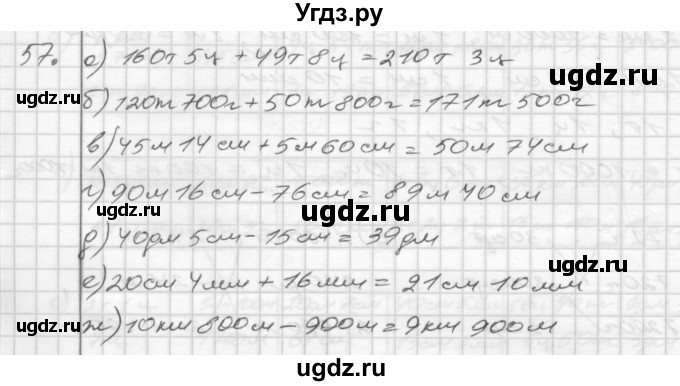 Угдз.ру
57. а) 160т 5ц + 49т 8ц = 210т 3ц
ug.gdz.ru
б) 120т 700г + 50т 800г = 171т 500г
ugdz.ru
в) 45м 14см + 5м 60см = 50м 74см
ugdz.ru
г) 90м 16см - 76см = 89м 40см
ugdz.ru
д) 40дм 5см - 15см = 39дм
е) 20см 4мм + 16мм = 21см 10мм
ugdz.ru
ж) 10км 800м - 900м = 9км 900м
ugdz.ru
Угдз.ру